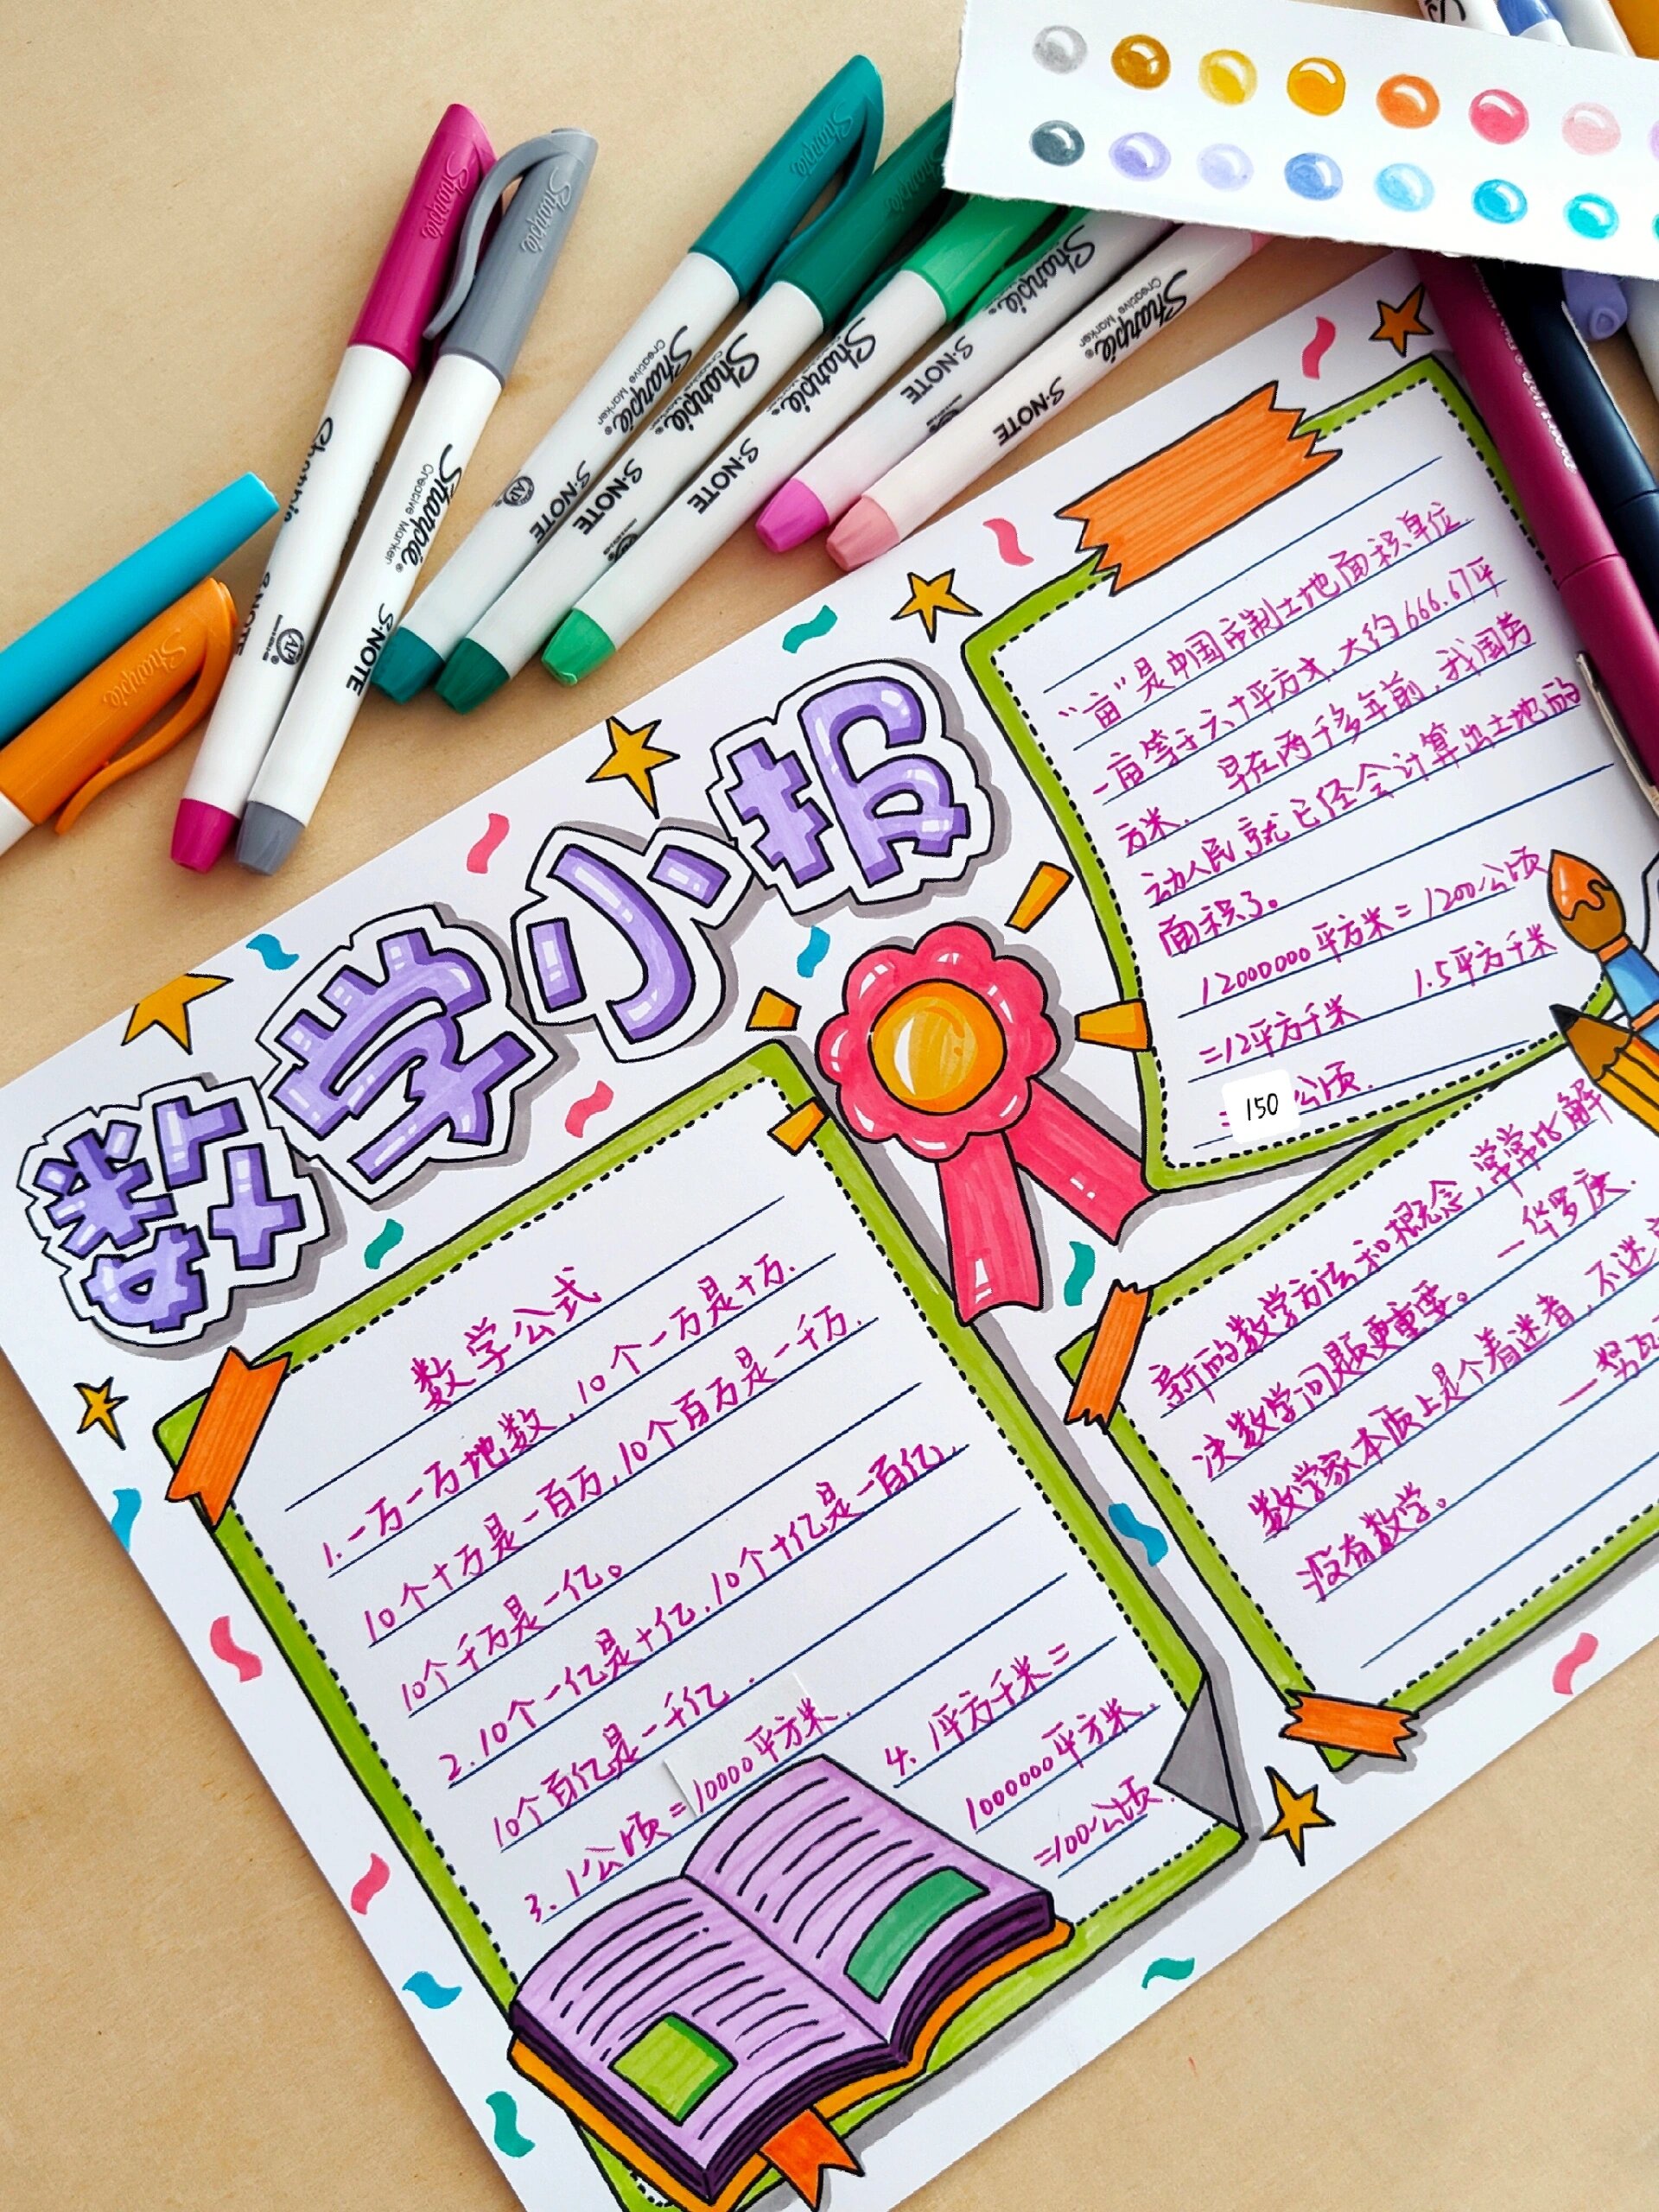 Sharpie
Sharpie
Sharpie
Sharpie
Sharpie
Sharpie
S·NOTE
Sharpie®
Creative Marker
S·NOTE
Sharpie®
Creative Marker
S·NOTE
Sharpie®
S·NOTE
Sharpie®
S·NOTE
Sharpie®
S·NOTE
Sharpie®
Creative Marker
S·NOTE
数学小报
“亩”是中国市制土地面积单位
一亩等于六十平方丈,大约666.67平
方米. 早在两千多年前,我国劳
动人民就已经会计算出土地的
面积了。
12000000平方米=1200公顷
=12平方千米 1.5平方千米
=150公顷.
数学公式
1.一万一万地数,10个一万是十万.
10个十万是一百万,10个百万是一千万.
10个千万是一亿。
2.10个一亿是十亿.10个十亿是一百亿.
10个百亿是一千亿.
3.1公顷=10000平方米.
4.1平方千米=
1000000平方米.
=100公顷.
新的数学方法和概念,常常比解
决数学问题更重要。 一华罗庚.
数学家本质上是个着迷者,不迷
没有数学。 一努瓦